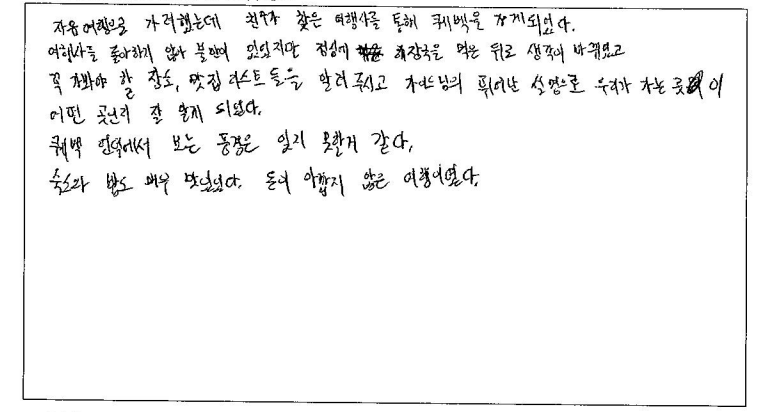 자유여행으로 가려했는데 친구가 찾은 여행사를 통해 퀘벡을 가게되었다.
여행사를 좋아하지 않아 불만이 있었지만 점심에 해장국을 먹은 뒤로 생각이 바뀌었고
꼭 가봐야 할 장소, 맛집 리스트 들을 알려주시고 가이드님의 뛰어난 설명으로 우리가 가는 곳이
어떤 곳인지 잘 알게 되었다.
퀘벡 언덕에서 보는 풍경은 잊지 못할거 같다.
숙소와 밥도 매우 맛있었다. 돈이 아깝지 않은 여행이였다.